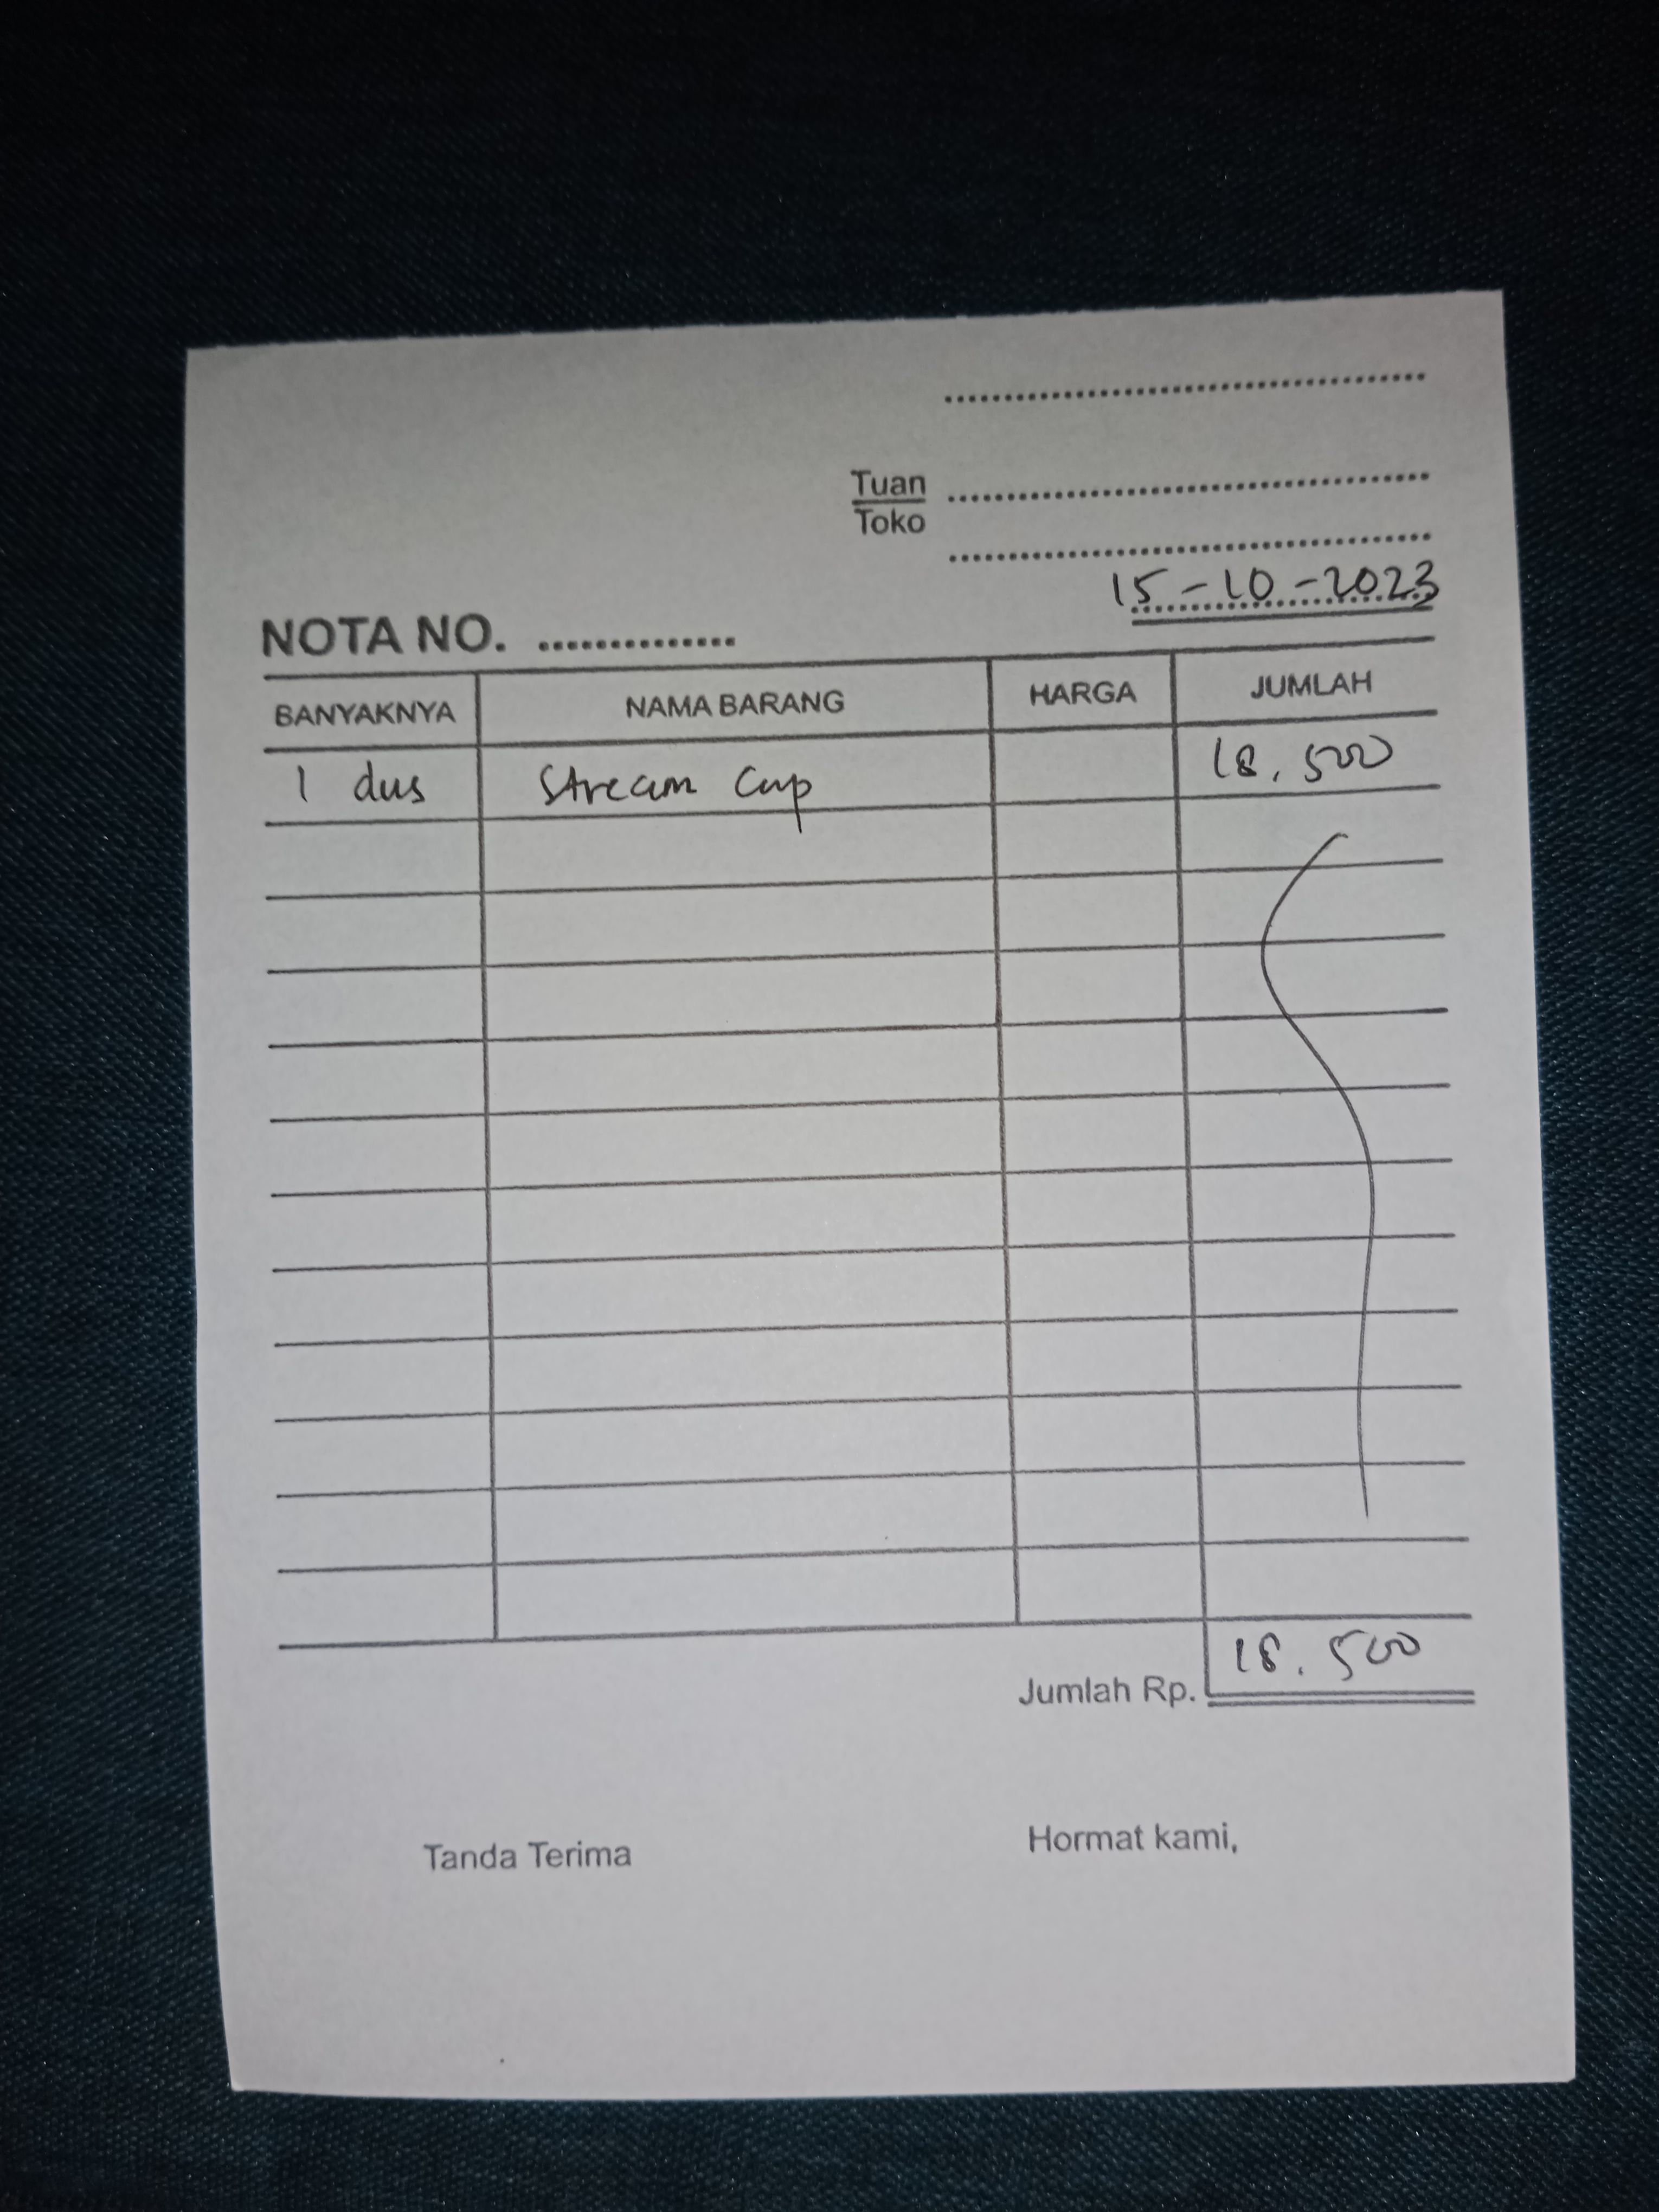 Tuan
Toko
15-10-2023
NOTA NO. ..............
BANYAKNYA NAMA BARANG HARGA JUMLAH
1 dus Stream Cup 18.500
Jumlah Rp. 18.500
Tanda Terima Hormat kami,